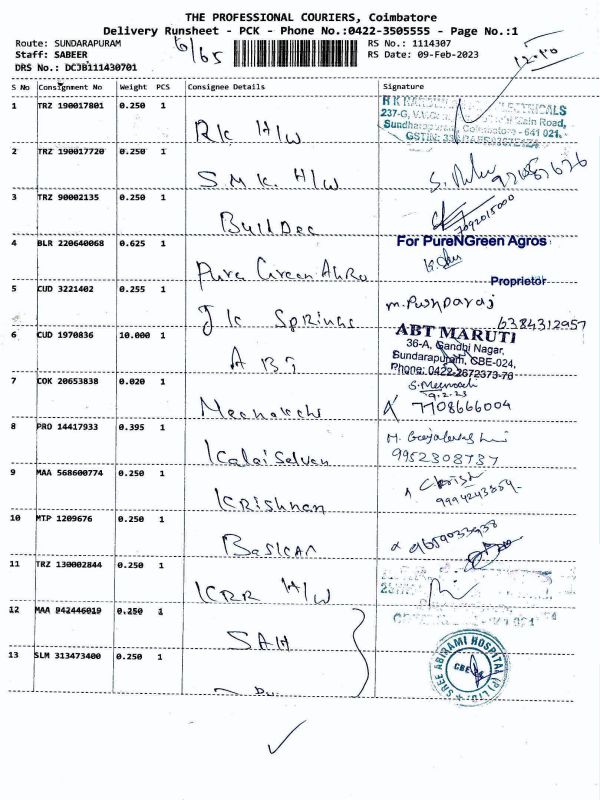 THE PROFESSIONAL COURIERS, Coimbatore
Delivery Runsheet - PCK - Phone No.:0422-3505555 - Page No.:1
Route: SUNDARAPURAM
6/65
RS No.: 1114307
Staff: SABEER
RS Date: 09-Feb-2023
DRS No.: DCJB111430701
S No Consignment No Weight PCS Consignee Details Signature
1 TRZ 190017801 0.250 1 RK H/W
2 TRZ 190017720 0.250 1 S.M.K. H/W
3 TRZ 90002135 0.250 1 BuilDec
7092015000
4 BLR 220640068 0.625 1 Pure Green Ahro
For PureNGreen Agros
Proprietor
5 CUD 3221402 0.255 1 JK Springs
m. Pushparaj
6384312957
6 CUD 1970836 10.000 1 ABT
ABT MARUTI
36-A, Gandhi Nagar,
Sundarapuram, CBE-024,
Phone: 0422-2672373-76
7 COK 20653838 0.020 1 Meenakchi
S. Meenach
9.2.23
7708666004
8 PRO 14417933 0.395 1 Kalai Selven
9952308737
9 MAA 568600774 0.250 1 Krishnan
9994243854
10 MTP 1209676 0.250 1 Baskar
9659033938
11 TRZ 130002844 0.250 1 KRR H/W
12 MAA 942446019 0.250 1 SAH
13 SLM 313473400 0.250 1
SREE ABIRAMI HOSPITAL (P) LTD.
CBE